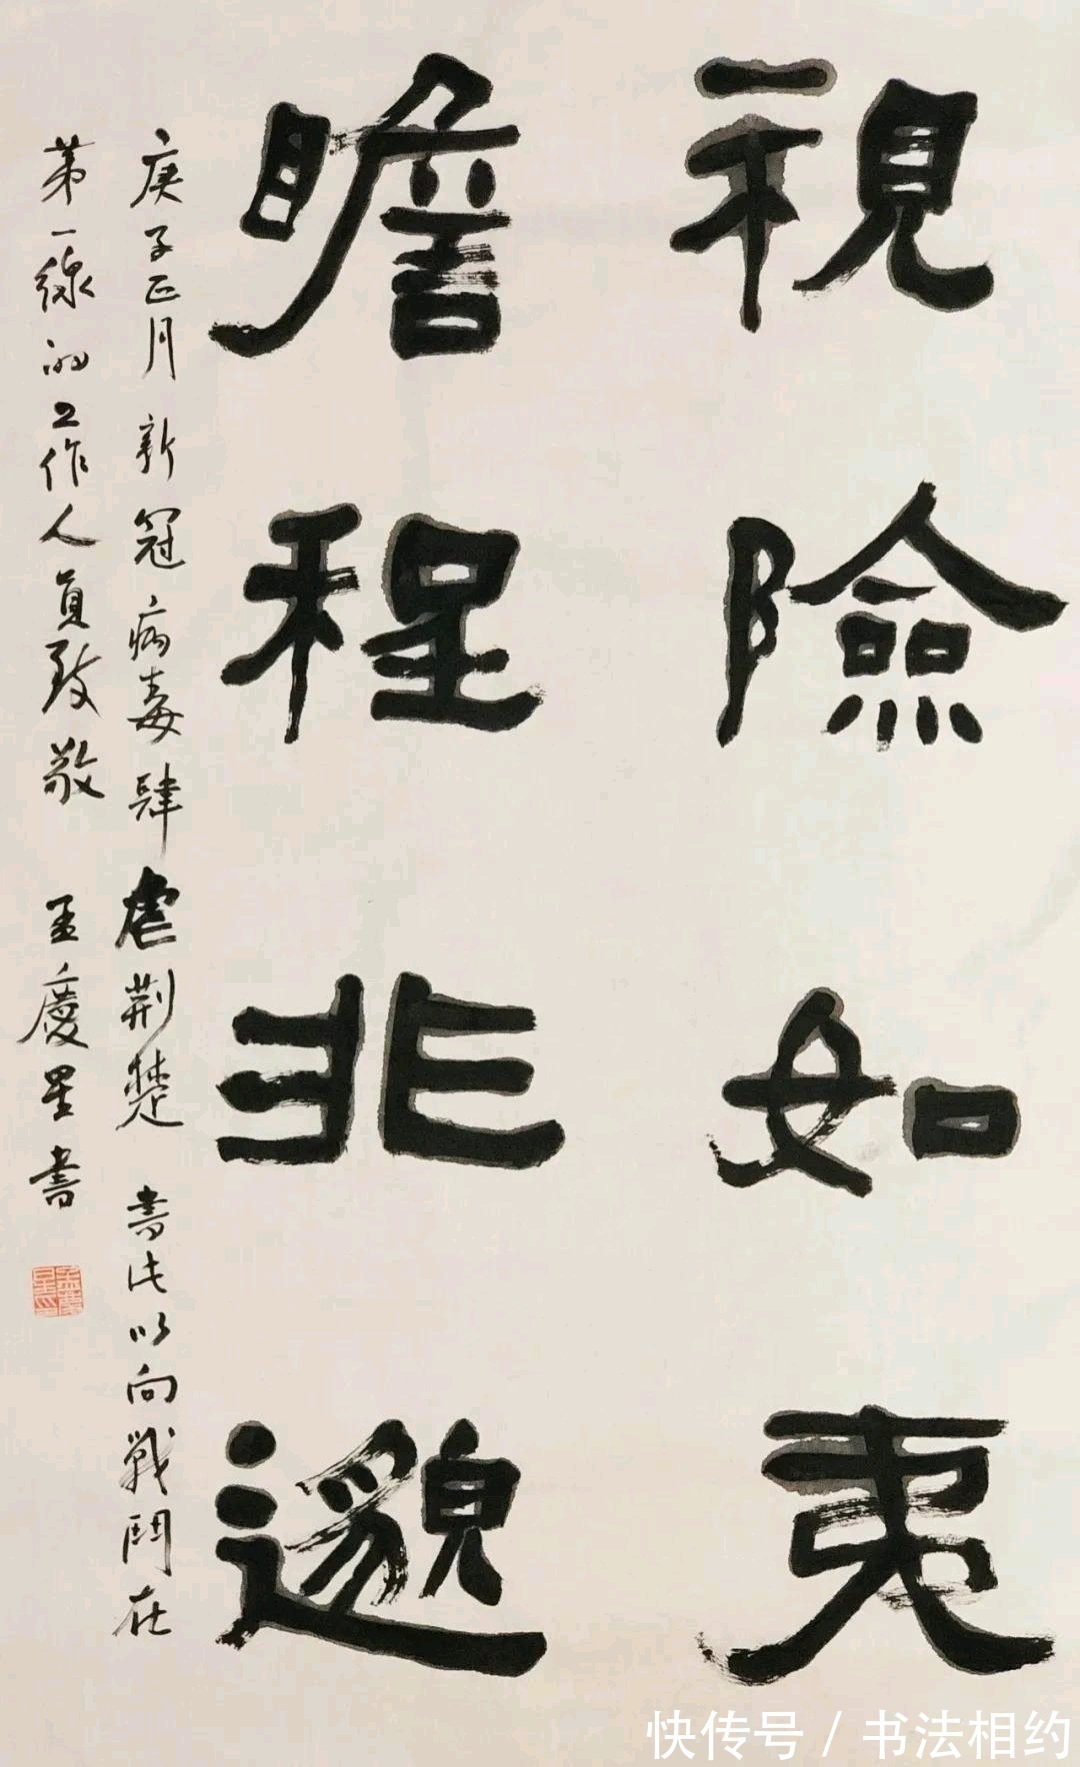 視險如夷
瞻程非邈
庚子正月新冠病毒肆虐荆楚書此以向戰鬥在
第一線的工作人員致敬 孟慶星書
快传号/书法相约